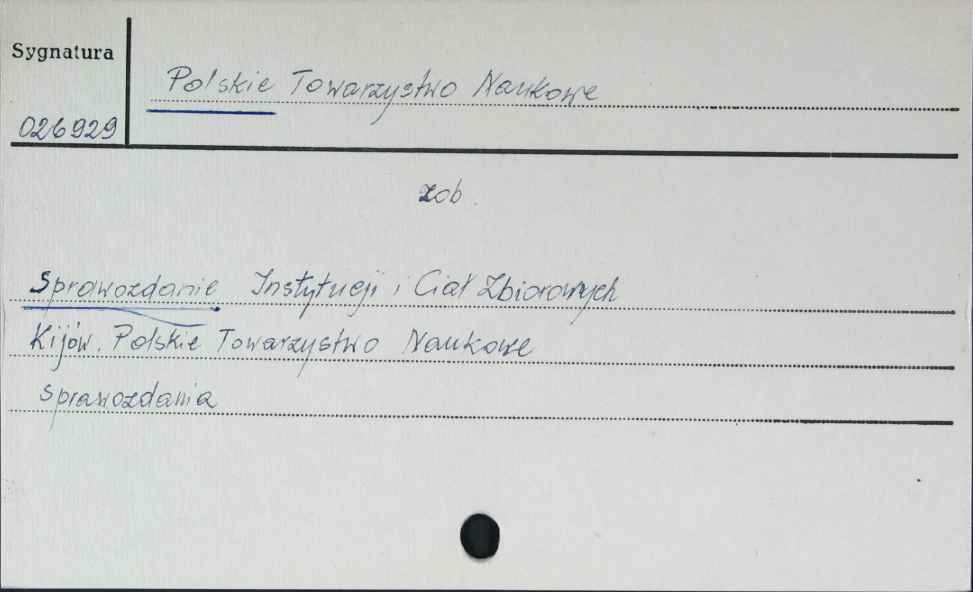 Sygnatura
Polskie Towarzystwo Naukowe
026929
zob.
Sprawozdanie Instytucji i Ciał Zbiorowych
Kijów. Polskie Towarzystwo Naukowe
Sprawozdania